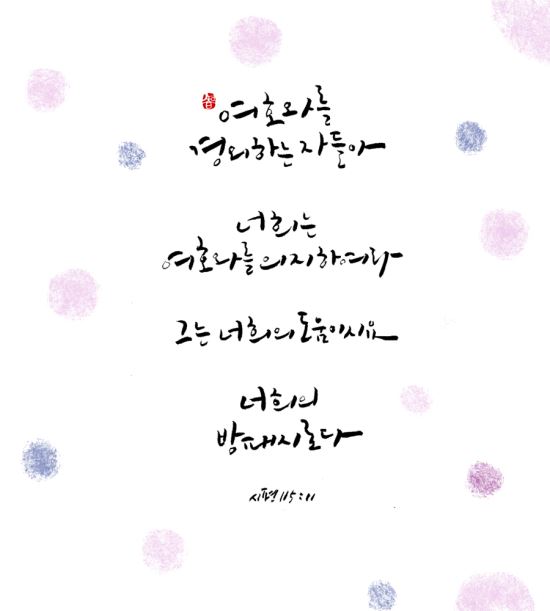 여호와를
경외하는 자들아
너희는
여호와를 의지하여라
그는 너희의 도움이시요
너희의
방패시로다
시편 115:11